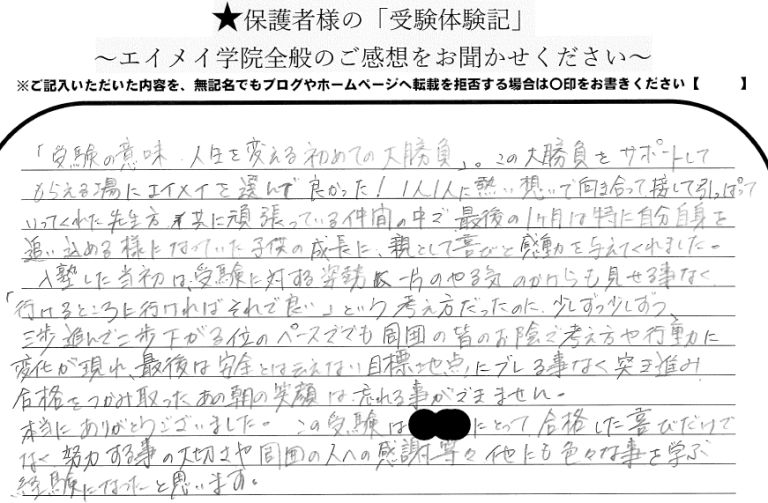 ★保護者様の「受験体験記」
～エイメイ学院全般のご感想をお聞かせください～
※ご記入いただいた内容を、無記名でもブログやホームページへ転載を拒否する場合は〇印をお書きください【　　　】
「受験の意味、人生を変える初めての大勝負」。この大勝負をサポートして
もらえる場にエイメイを選んで良かった！1人1人に熱い想いで向き合って接して引っぱって
いってくれた先生方、共に頑張っている仲間の中で、最後の1ヶ月は特に自分自身を
追い込める様になっていた子供の成長に、親として喜びと感動を与えてくれました。
入塾した当初は、受験に対する姿勢 一片のやる気のかけらも見せる事なく
「行けるところに行ければそれで良い」という考え方だったのに、少しずつ少しずつ、
三歩進んで二歩下がる位のペースででも周囲の皆のお陰で考え方や行動に
変化が現れ、最後は安全とは云えない目標地点にブレる事なく突き進み
合格をつかみ取ったあの朝の笑顔は忘れる事ができません。
本当にありがとうございました。この受験は にとって、合格した喜びだけで
なく、努力する事の大切さや周囲の人への感謝、等々他にも色々な事を学ぶ
経験になったと思います。